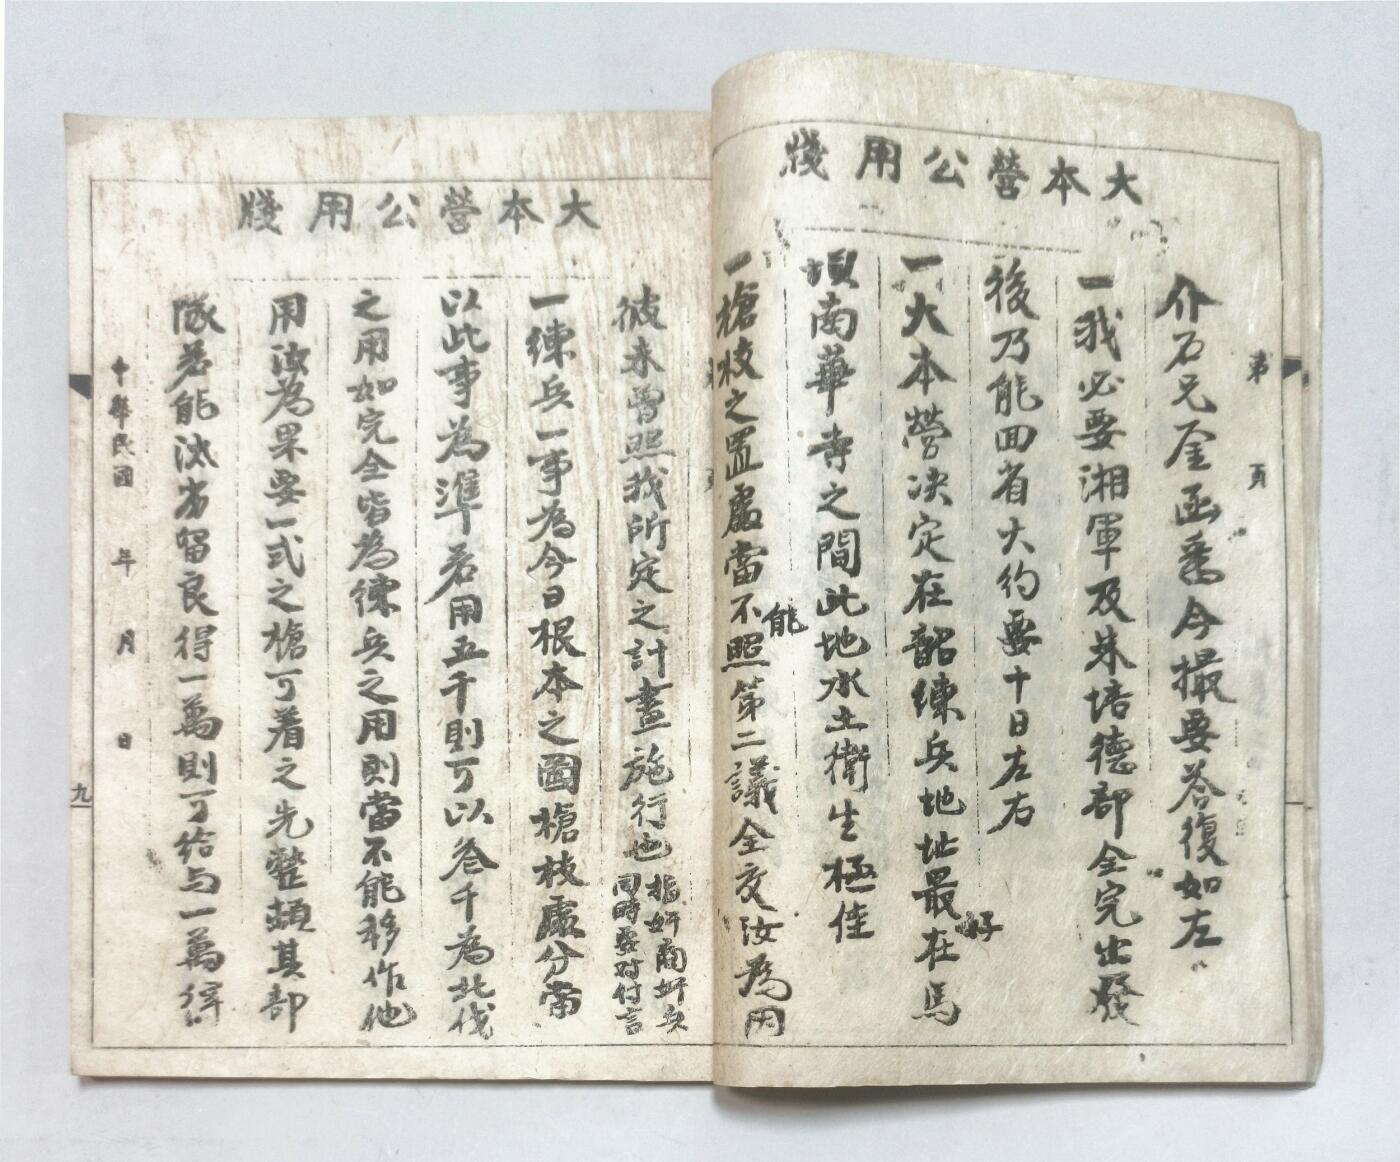 大本營公用牋
第　頁
介石兄鑒函悉今撮要答復如左
一我必要湘軍及朱培德部全完出發
後乃能回省大約要十日左右
一大本營决定在韶練兵地址最好在馬
壩南華寺之間此地水土衛生極佳
一槍枝之置處當不能照第二議全交汝為因
大本營公用牋
彼未曾照我所定之計畫施行也指奸商奸兵
同時要对付言
一練兵一事為今日根本之圖槍枝處分當
以此事為準若用五千則可以叁千為北伐
之用如完全皆為練兵之用則當不能移作他
用汝為果要一式之槍可着之先整頓其部
隊若能汰劣留良得一萬則可給与一萬律
中華民國　年　月　日
九